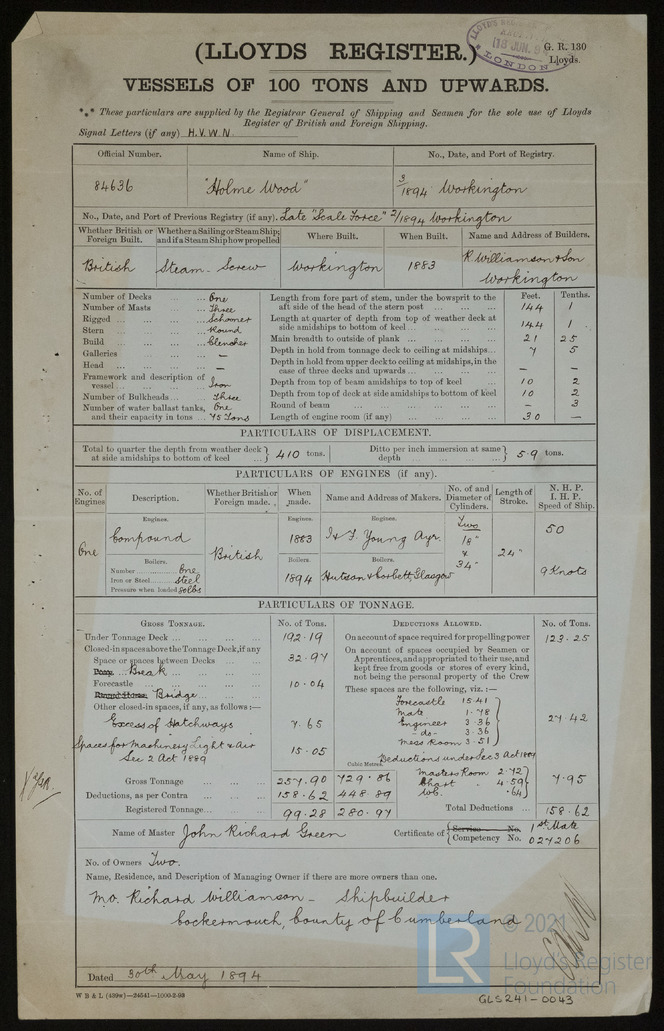 LLOYD'S REGISTER
18 JUN. 94
LONDON
(LLOYDS REGISTER.)
G. R. 130
Lloyds.
VESSELS OF 100 TONS AND UPWARDS.
*⁎* These particulars are supplied by the Registrar General of Shipping and Seamen for the sole use of Lloyds
Register of British and Foreign Shipping.
Signal Letters (if any) H.V.W.N.
Official Number. Name of Ship. No., Date, and Port of Registry.
84636 "Holme Wood" 3/1894 Workington
No., Date, and Port of Previous Registry (if any). Late "Scale Force" 2/1894 Workington
Whether British or Foreign Built. Whether a Sailing or Steam Ship; and if a Steam Ship how propelled Where Built. When Built. Name and Address of Builders.
British Steam-Screw Workington 1883 R. Williamson & Son Workington
Number of Decks ... One
Number of Masts ... Three
Rigged ... Schooner
Stern ... Round
Build ... Clencher
Galleries ... —
Head ... —
Framework and description of vessel ... Iron
Number of Bulkheads ... Three
Number of water ballast tanks, and their capacity in tons ... One 45 Tons
Feet. Tenths.
Length from fore part of stem, under the bowsprit to the aft side of the head of the stern post ... 144 1
Length at quarter of depth from top of weather deck at side amidships to bottom of keel ... 144 1
Main breadth to outside of plank ... 21 25
Depth in hold from tonnage deck to ceiling at midships ... 7 5
Depth in hold from upper deck to ceiling at midships, in the case of three decks and upwards ... — —
Depth from top of beam amidships to top of keel ... 10 2
Depth from top of deck at side amidships to bottom of keel 10 2
Round of beam ... — 3
Length of engine room (if any) ... 30 —
PARTICULARS OF DISPLACEMENT.
Total to quarter the depth from weather deck at side amidships to bottom of keel ... } 410 tons. Ditto per inch immersion at same depth ... } 5.9 tons.
PARTICULARS OF ENGINES (if any).
No. of Engines Description. Whether British or Foreign made. When made. Name and Address of Makers. No. of and Diameter of Cylinders. Length of Stroke. N. H. P. I. H. P. Speed of Ship.
Engines. Engines. Engines.
One Compound British 1883 J & F. Young Ayr. Two 18" & 34" 24" 50
Boilers. Boilers. Boilers.
Number ... One
Iron or Steel ... Steel
Pressure when loaded 80lbs
1894 Hutson & Corbett, Glasgow 9 Knots
PARTICULARS OF TONNAGE.
GROSS TONNAGE. No. of Tons. DEDUCTIONS ALLOWED. No. of Tons.
Under Tonnage Deck ... 192.19
Closed-in spaces above the Tonnage Deck, if any
Space or spaces between Decks ...
Poop Break ... 32.97
Forecastle ... 10.04
Round House Bridge ...
Other closed-in spaces, if any, as follows:—
Excess of Hatchways 7.65
Spaces for Machinery Light & Air 15.05
Sec 2 Act 1889
Cubic Metres.
Gross Tonnage ... 257.90 729.86
Deductions, as per Contra ... 158.62 448.89
Registered Tonnage ... 99.28 280.97
On account of space required for propelling power 123.25
On account of spaces occupied by Seamen or Apprentices, and appropriated to their use, and kept free from goods or stores of every kind, not being the personal property of the Crew
These spaces are the following, viz.:—
Forecastle 15.41
Mate 1.78
Engineer 3.36
-do- 3.36
Mess Room 3.51
27.42
Deductions under Sec 3 Act 1889
Masters Room 2.72
Chart " 4.59
WC. .64
7.95
Total Deductions ... 158.62
Name of Master John Richard Green Certificate of { Service No. Competency No. 1st Mate 027206
No. of Owners Two.
Name, Residence, and Description of Managing Owner if there are more owners than one.
M.O. Richard Williamson - Shipbuilder
Cockermouth, County of Cumberland
Dated 30th May 1894
W B & L (439w)—24541—1000-2-93
GLS241-0043
LR
© 2021
Lloyd's Register
Foundation